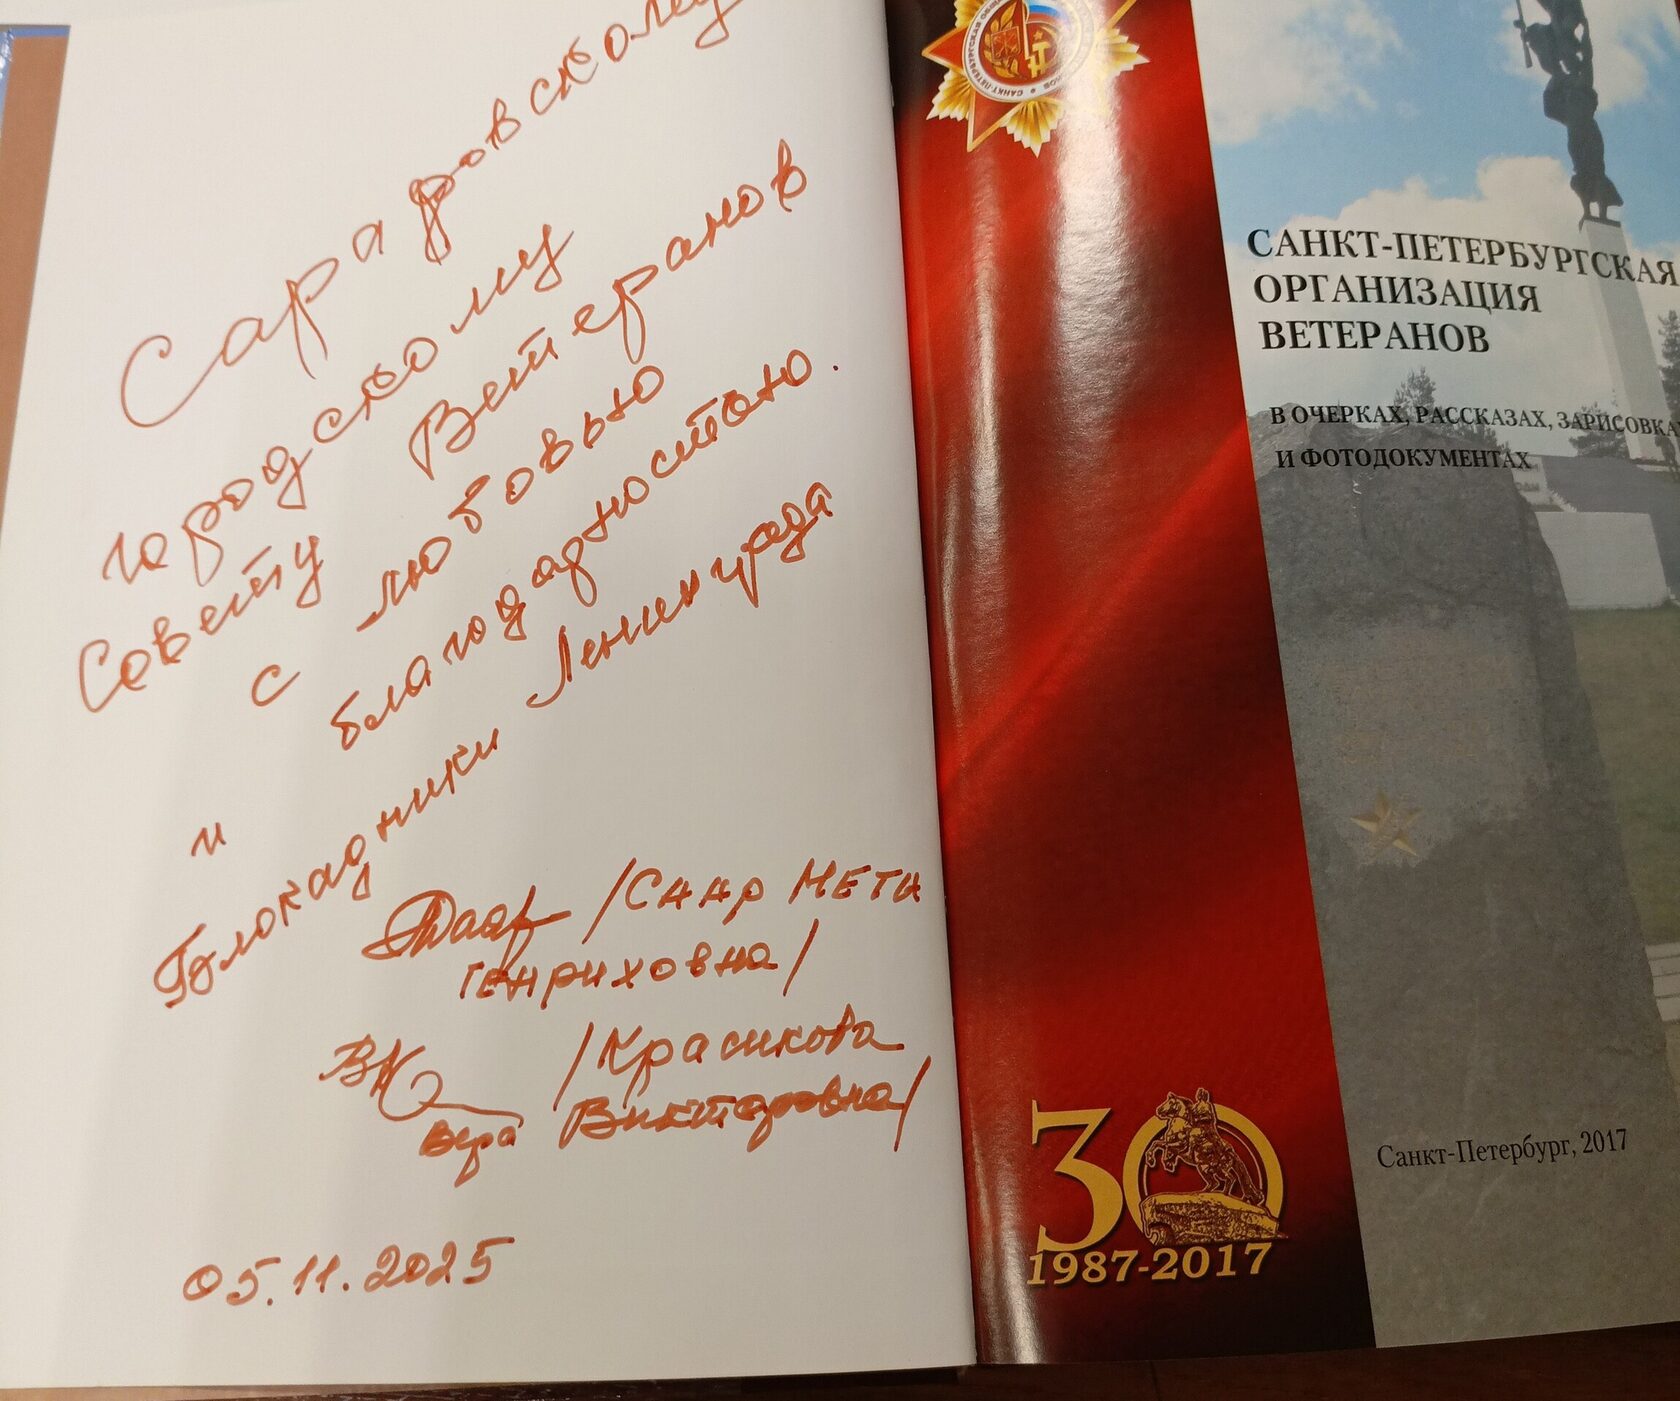 Саратовскому
городскому
Совету Ветеранов
с любовью
и благодарностью.
Блокадники Ленинграда
/Саар Мета
Генриховна/
/Красикова
Вера Викторовна/
05.11.2025
САНКТ-ПЕТЕРБУРГСКАЯ
ОРГАНИЗАЦИЯ
ВЕТЕРАНОВ
В ОЧЕРКАХ, РАССКАЗАХ, ЗАРИСОВКАХ
И ФОТОДОКУМЕНТАХ
30
1987-2017
Санкт-Петербург, 2017